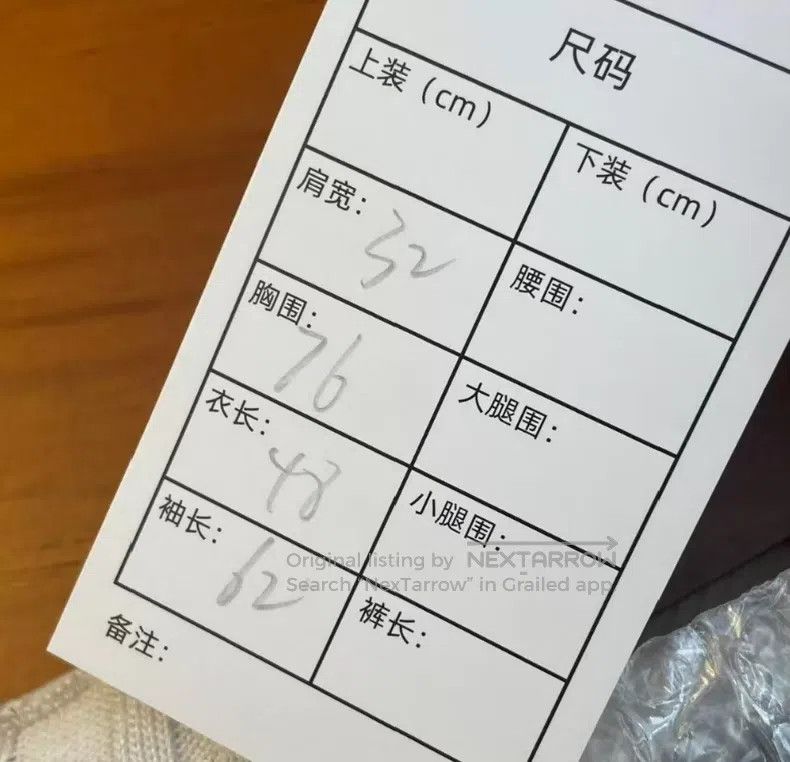 尺码
上装（cm）
下装（cm）
肩宽：32
腰围：
胸围：76
大腿围：
衣长：48
小腿围：
袖长：62
裤长：
备注：
Original listing by NEXTARROW
Search "NexTarrow" in Grailed app